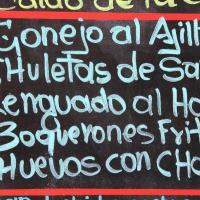 Caldo de
Conejo al Ajill
Chuletas de Sa
Lenguado al Ho
Boquerones Frit
Huevos con Cho